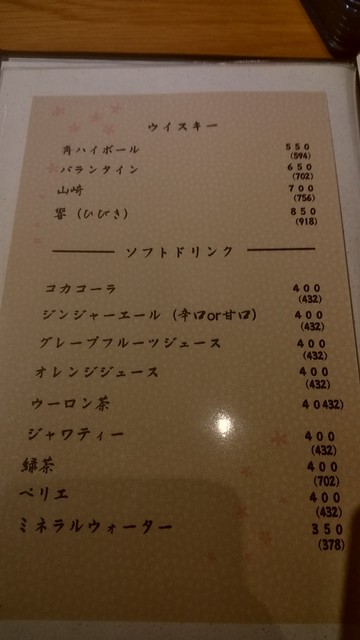 ウイスキー
角ハイボール 550
(594)
バランタイン 650
(702)
山崎 700
(756)
響(ひびき) 850
(918)
ソフトドリンク
コカコーラ 400
(432)
ジンジャーエール (辛口or甘口) 400
(432)
グレープフルーツジュース 400
(432)
オレンジジュース 400
(432)
ウーロン茶 40432)
ジャワティー 400
(432)
緑茶 400
(702)
ペリエ 400
(432)
ミネラルウォーター 350
(378)